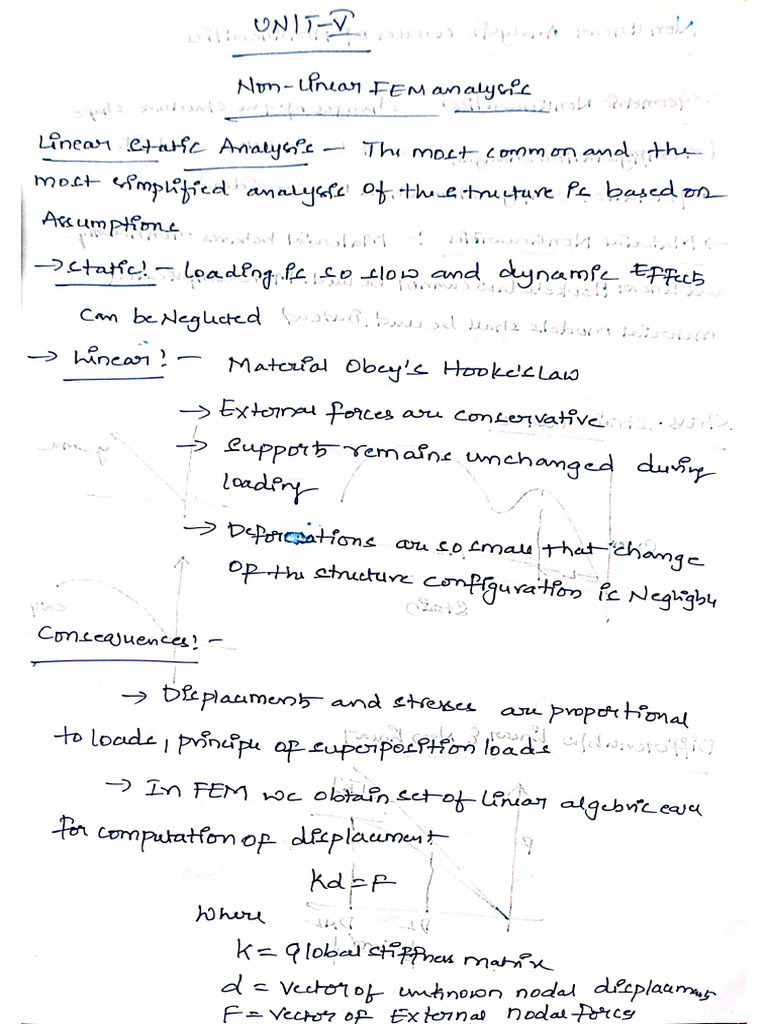 UNIT-V
Non-Linear FEM analysis
Linear Static Analysis - The most common and the
most simplified analysis of the structure is based on
Assumptions
→ Static! - Loading is so slow and dynamic Effects
Can be Neglucted
→ Linear! - Material Obey's Hooke's Law
→ External forces are conservative
→ Support remains unchanged during
loading
→ Deformations are so small that change
of the structure configuration is Negligble
Consequences! -
→ Displacements and stresses are proportional
to loads, principle of superposition loads
→ In FEM we obtain set of linear algebric
for computation of displacement
Kd = F
Where
K = global stiffness matrix
d = vector of unknown nodal displacement
F = vector of External nodal forces